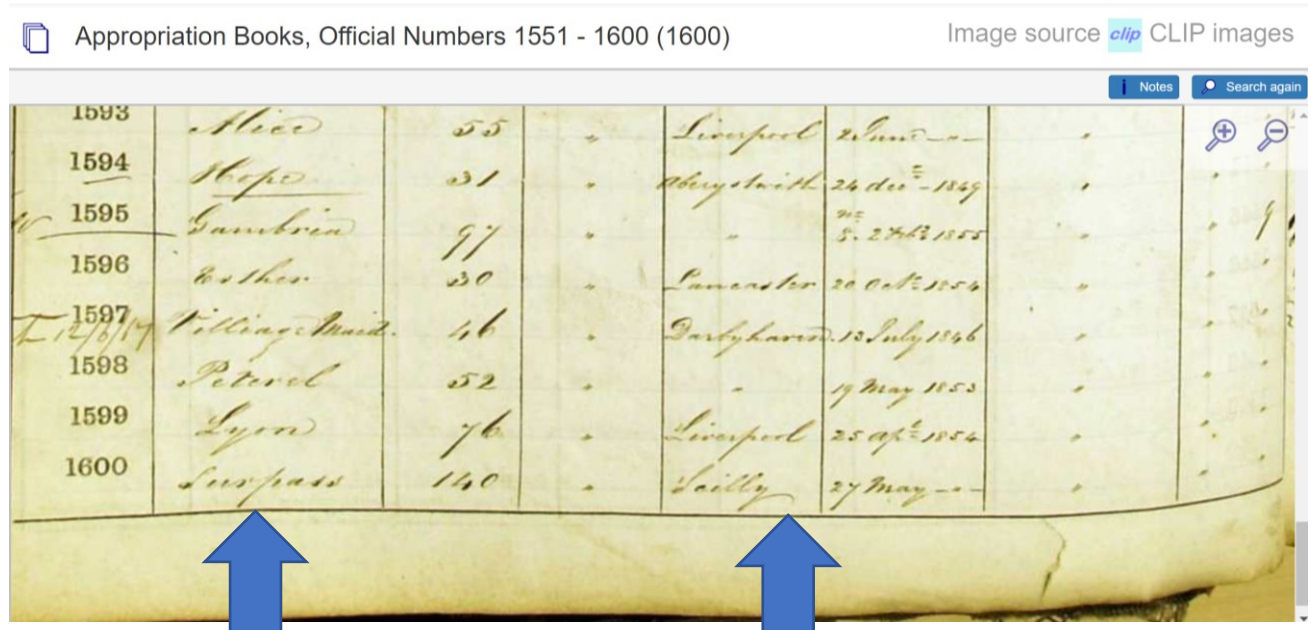 Appropriation Books, Official Numbers 1551 - 1600 (1600) Image source clip CLIP images
i Notes Search again
1593 Alice 55 " Liverpool 2 June - "-
1594 Hope 31 " Aberystwith 24 dec - 1849 "
1595 Gambria 97 " " 1855 "
1596 Esther 30 " Lancaster 20 Oct 1854 "
12/6/17 1597 Village Maid. 46 " Darbyhaven. 13 July 1846 "
1598 Peterel 52 " " 19 May 1853 "
1599 Lyon 76 " Liverpool 25 Apl 1854 "
1600 Surpass 140 " Scilly 27 May - "- "